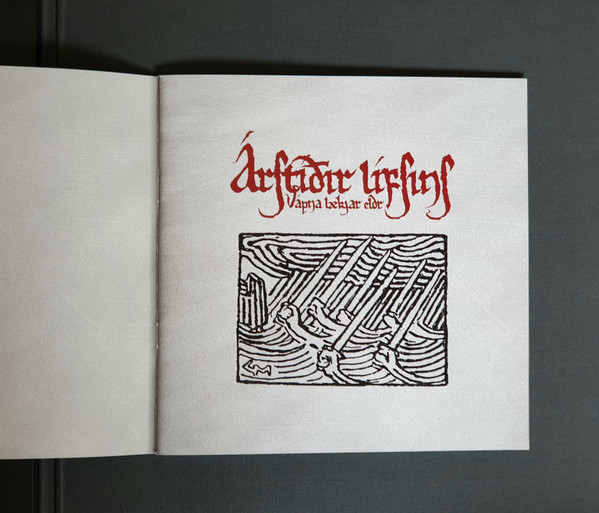 Árstíðir lífsins
Vápna lækjar eldr
GM